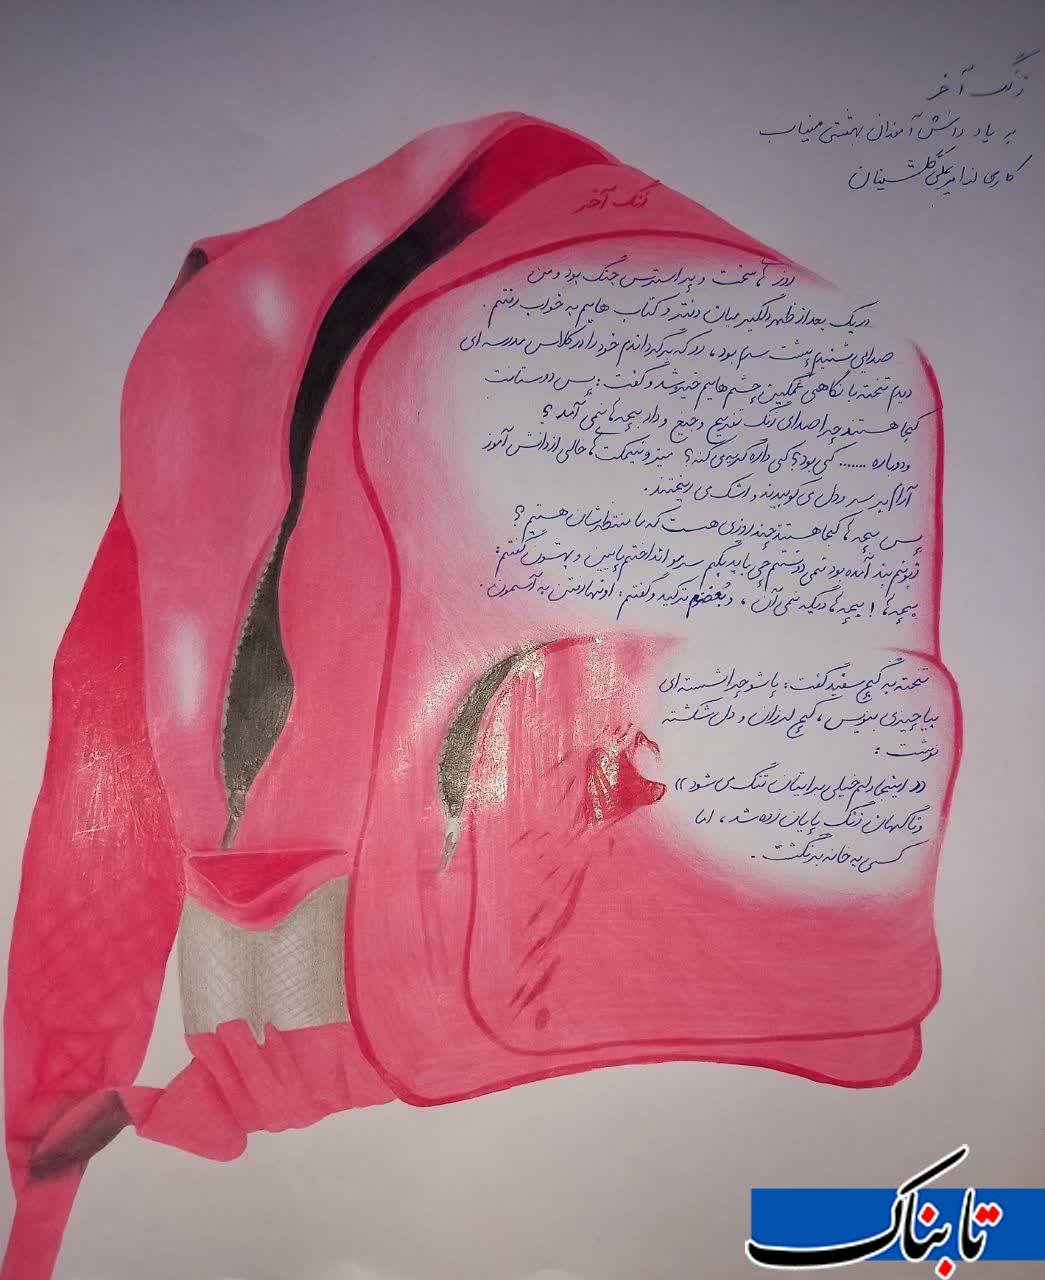 زنگ آخر
به یاد دانش آموزان بهشتی میناب
کاری از امیرعلی گلشینان
زنگ آخر
روزهای سخت و پر استرس جنگ بود و من
در یک بعد از ظهر دلگیر میان دفتر و کتاب هایم به خواب رفتم.
صدایی شنیدم پشت سرم بود، رو که برگرداندم خود را در کلاس مدرسه ای
دیدم تخته با نگاهی غمگین چشم هایم خیره شد و گفت: پس دوستانت
کجا هستند چرا صدای زنگ تفریح و جیغ و داد بچه ها نمی آمد؟
و دوباره ....... کی بود؟ کی داره گریه می کنه؟ میز و نیمکت های خالی از دانش آموز
آرام بر سر و دل می کوبیدند و اشک می ریختند.
پس بچه ها کجا هستند چند روزی هست که ما منتظرشان هستیم؟
زبونم بند آمده بود نمی دونستم چی باید بگم سرمو انداختم پایین و بهشون گفتم:
بچه ها! بچه ها دیگه نمی آن، و بغضم ترکید و گفتم: اونها رفتن به آسمون.
تخته به گچ سفید گفت: پاشو چرا نشسته ای
بیا چیزی بنویس، گچ لرزان و دل شکسته
نوشت:
«اینجا دلم خیلی برایتان تنگ می شود»
و ناگهان زنگ پایان زده شد، اما
کسی به خانه برنگشت.
تابناک